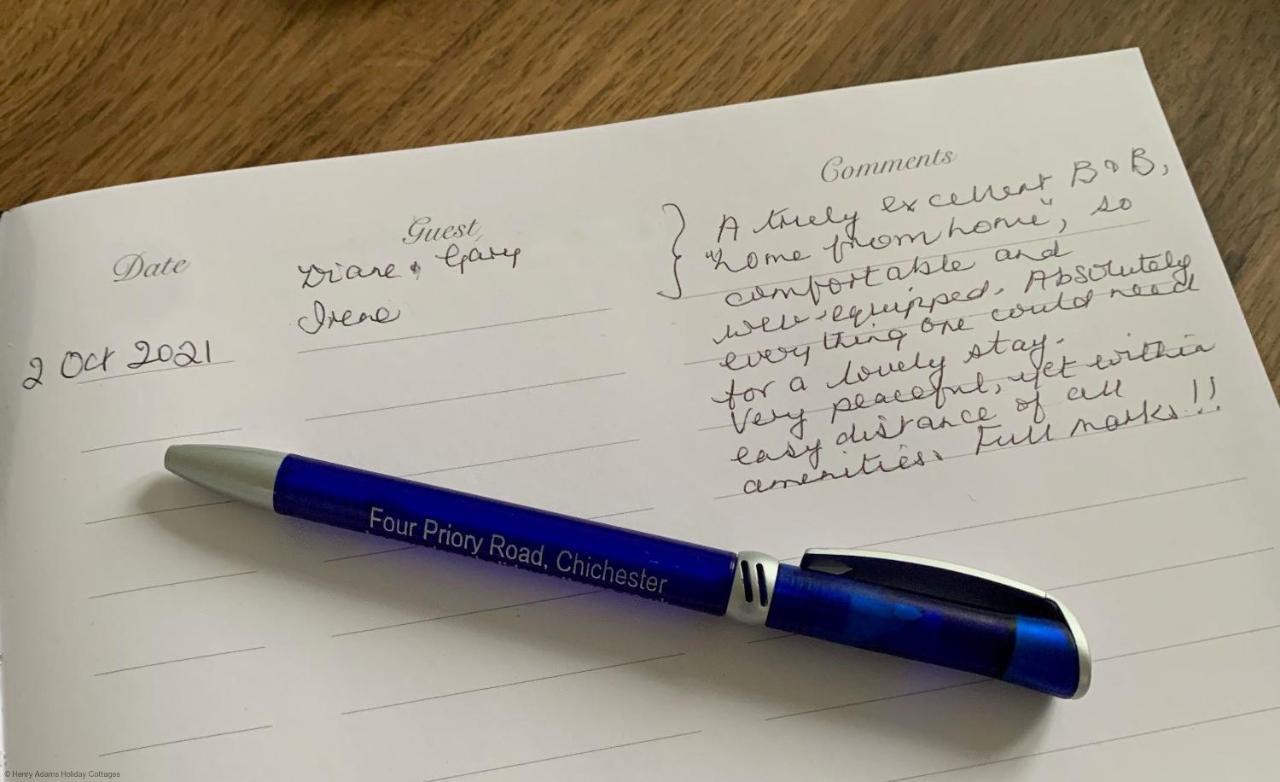 Date
Guest
Comments
Diane & Gary
Irene
2 Oct 2021
A truly excellent B&B,
"home from home", so
comfortable and
well-equipped. Absolutely
everything one could need
for a lovely stay.
Very peaceful, yet within
easy distance of all
amenities. Full marks!!
Four Priory Road, Chichester
© Henry Adams Holiday Cottages